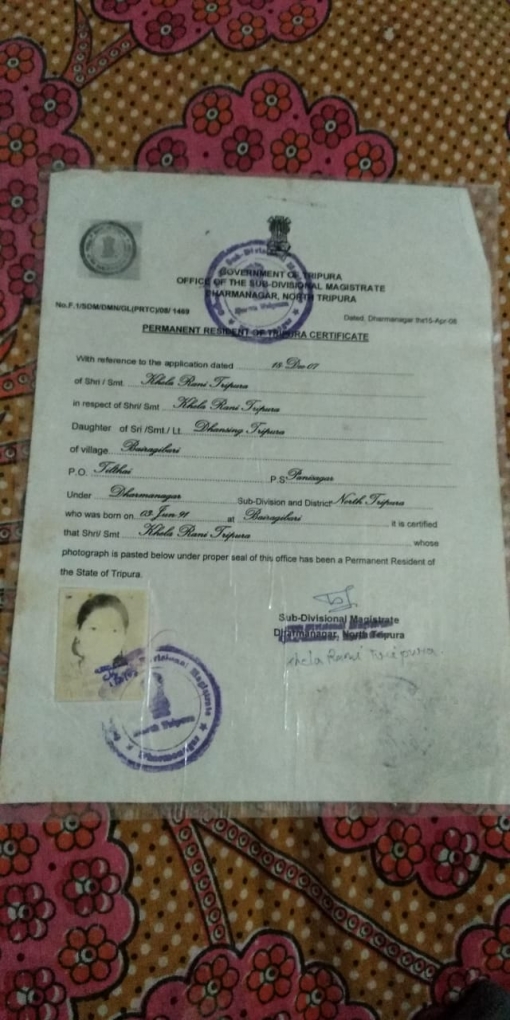 GOVERNMENT OF TRIPURA
OFFICE OF THE SUB-DIVISIONAL MAGISTRATE
DHARMANAGAR, NORTH TRIPURA
No.F.1/SDM/DMN/GL(PRTC)/08/ 1469
Dated, Dharmanagar the15-Apr-08
PERMANENT RESIDENT OF TRIPURA CERTIFICATE
With reference to the application dated 18-Dec-07
of Shri / Smt. Khela Rani Tripura
in respect of Shri/ Smt Khela Rani Tripura
Daughter of Sri /Smt./ Lt. Dhansing Tripura
of village Bairagibari
P.O. Tilthai P.S Panisagar
Under Dharmanagar Sub-Division and District North Tripura
who was born on 03-Jun-91 at Bairagibari it is certified
that Shri/ Smt Khela Rani Tripura whose
photograph is pasted below under proper seal of this office has been a Permanent Resident of
the State of Tripura.
Sub-Divisional Magistrate
Dharmanagar, North Tripura
Khela Rani Tripura.
Sub-Divisional Magistrate
North Tripura
Dharmanagar